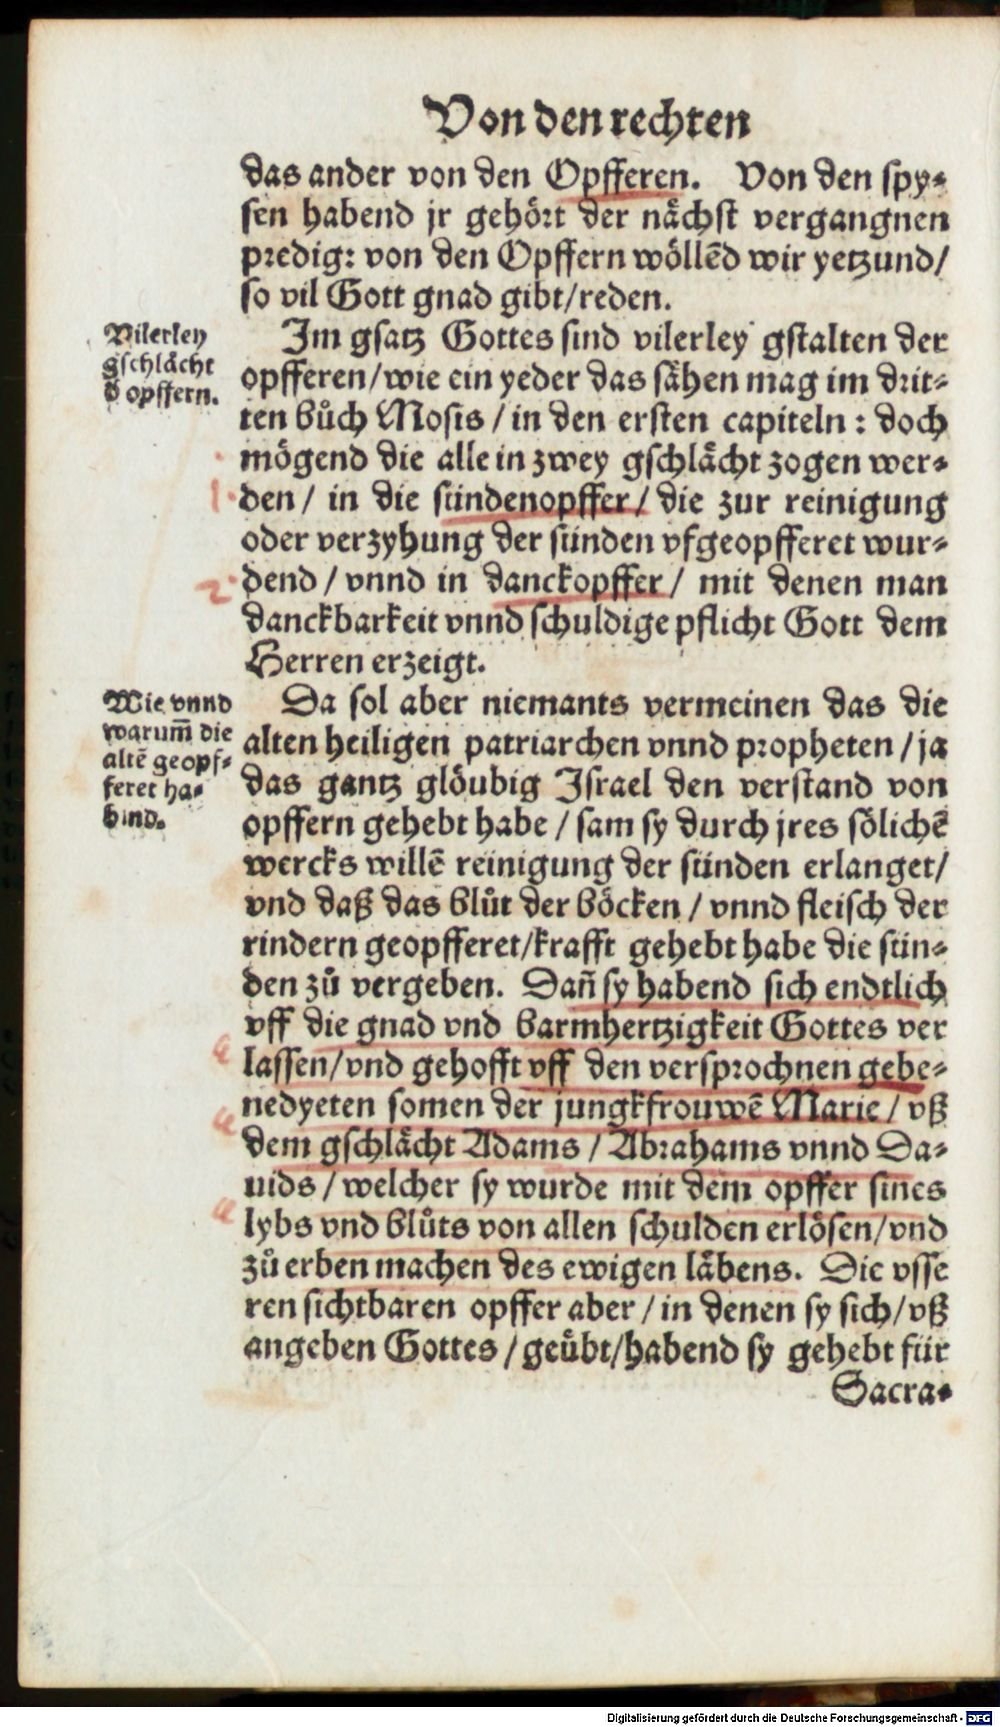 Von den rechten
das ander von den Opfferen. Von den spy⸗
sen habend jr gehoͤrt der naͤchst vergangnen
predig: von den Opffern woͤllēd wir yetzund/
so vil Gott gnad gibt/reden.
Vilerley
gschlaͤcht
d̕ opffern.
Im gsatz Gottes sind vilerley gstalten der
opfferen/wie ein yeder das saͤhen mag im drit⸗
ten bůch Mosis / in den ersten capiteln: doch
moͤgend die alle in zwey gschlaͤcht zogen wer⸗
1.
den / in die sündenopffer / die zur reinigung
oder verzyhung der sünden vfgeopfferet wur⸗
2.
dend / vnnd in danckopffer / mit denen man
danckbarkeit vnnd schuldige pflicht Gott dem
Herren erzeigt.
Wie vnnd
warum̄ die
altē geopf⸗
feret ha⸗
bind.
Da sol aber niemants vermeinen das die
alten heiligen patriarchen vnnd propheten / ja
das gantz gloͤubig Israel den verstand von
opffern gehebt habe / sam sy durch jres soͤlichē
wercks willē reinigung der sünden erlanget/
vnd daß das blůt der boͤcken / vnnd fleisch der
rindern geopfferet/krafft gehebt habe die sün⸗
den zů vergeben. Dañ sy habend sich endtlich
vff die gnad vnd barmhertzigkeit Gottes ver
lassen/vnd gehofft vff den versprochnen gebe⸗
nedyeten somen der jungkfrouwē Marie / vß
dem gschlaͤcht Adams / Abrahams vnnd Da⸗
uids / welcher sy wurde mit dem opffer sines
lybs vnd blůts von allen schulden erloͤsen/vnd
zů erben machen des ewigen laͤbens. Die vsse
ren sichtbaren opffer aber / in denen sy sich/vß
angeben Gottes / geuͤbt/habend sy gehebt für
Sacra⸗
Digitalisierung gefördert durch die Deutsche Forschungsgemeinschaft - DFG